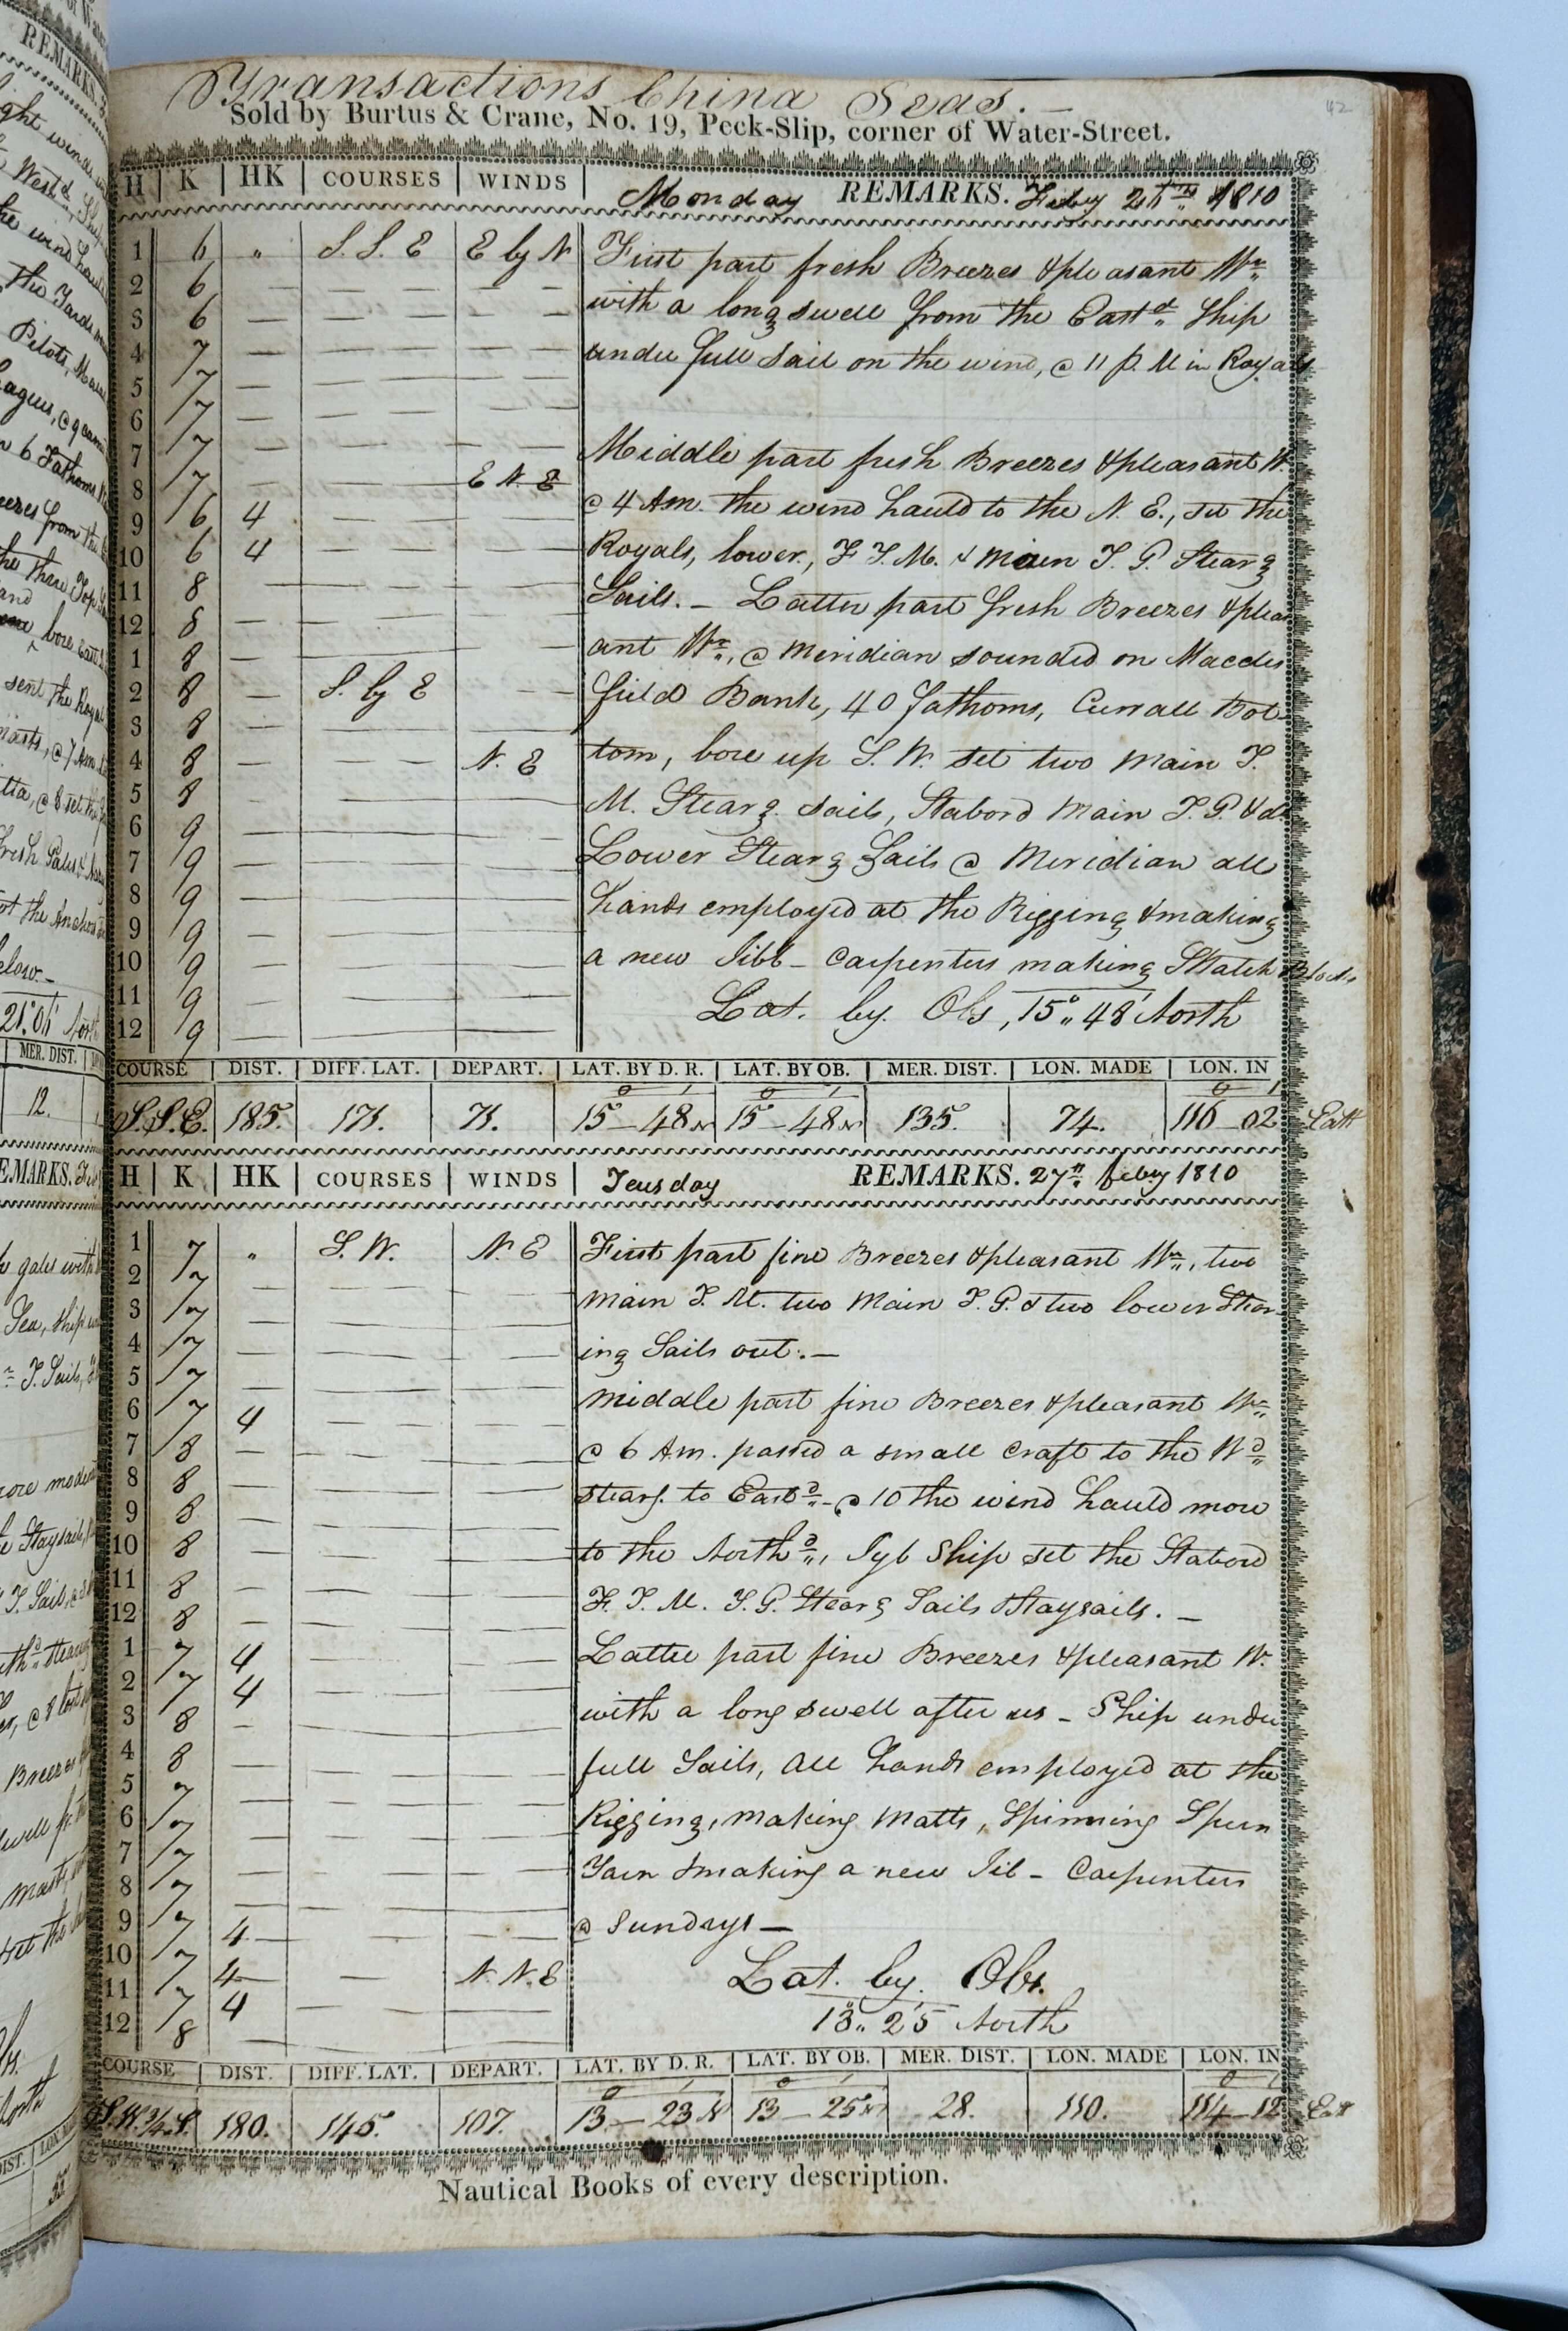 Transactions China Seas. —
42
Sold by Burtus & Crane, No. 19, Peck-Slip, corner of Water-Street.
H | K | HK | COURSES | WINDS | Monday REMARKS. Feby 26th 1810
1 6 " S. S. E E by N First part fresh Breezes & pleasant Wr
2 6 — — — with a long swell from the Eastd Ship
3 6 — — —
4 7 — — — under full Sail on the wind, @ 11 P. M in Royals
5 7 — — —
6 7 — — —
7 7 — — — Middle part fresh Breezes & pleasant W.
8 7 — — E N. E
9 6 4 — — @ 4 Am. the wind hauld to the N. E., set the
10 6 4 — — Royals, lower, F T. M. & Main T. G. Stearg
11 8 — — —
12 8 — — — Sails. — Latter part fresh Breezes & pleas
1 8 — — — ant Wr, @ Meridian sounded on Maccles
2 8 — S. by E — field Bank, 40 fathoms, Currall Bot
3 8 — — —
4 8 — — N. E tom, bore up S. W. set two Main T.
5 8 — — — M. Stearg. sails, Stabord Main T. G. & do
6 9 — — —
7 9 — — — Lower Stearg Sails @ Meridian all
8 9 — — — hands employed at the Rigging & making
9 9 — — —
10 9 — — — a new Jibb — Carpenters making Snatch Blocks
11 9 — — — Lat. by. Obs, 15° 48' North
12 9 — — —
COURSE | DIST. | DIFF. LAT. | DEPART. | LAT. BY D. R. | LAT. BY OB. | MER. DIST. | LON. MADE | LON. IN
S.S.E. 185. 171. 71. 15 — 48 N 15 — 48 N 135. 74. 116 — 02 East
H | K | HK | COURSES | WINDS | Teusday REMARKS. 27th feby 1810
1 7 " S. W. N. E First part fine Breezes & pleasant Wr, two
2 7 — — —
3 7 — — — Main T. M. two Main T. G. & two lower Stear-
4 7 — — — ing Sails out. —
5 7 — — —
6 7 4 — — Middle part fine Breezes & pleasant Wr
7 8 — — — @ 6 Am. passed a small craft to the Wd
8 8 — — —
9 8 — — — stearg. to Eastd — @ 10 the wind hauld more
10 8 — — — to the Northd, Jyb Ship set the Stabord
11 8 — — —
12 8 — — — F. T. M. T. G. Stearg Sails & Staysails. —
1 7 4 — — Latter part fine Breezes & pleasant W.
2 7 4 — —
3 8 — — — with a long swell after us — Ship under
4 8 — — — full Sails, All hands employed at the
5 7 — — —
6 7 — — — Rigging, making Matts, Spinning Spun
7 7 — — — Yarn & making a new Jib — Carpenters
8 7 — — —
9 7 4 — — @ Sundrys —
10 7 4 — N. N. E Lat. by. Obs.
11 7 4 — — 13° 25' North
12 8 — — —
COURSE | DIST. | DIFF. LAT. | DEPART. | LAT. BY D. R. | LAT. BY OB. | MER. DIST. | LON. MADE | LON. IN
S.W. 3/4 S. 180. 145. 107. 13 — 23 N 13 — 25 N 28. 110. 114 — 12 East
Nautical Books of every description.